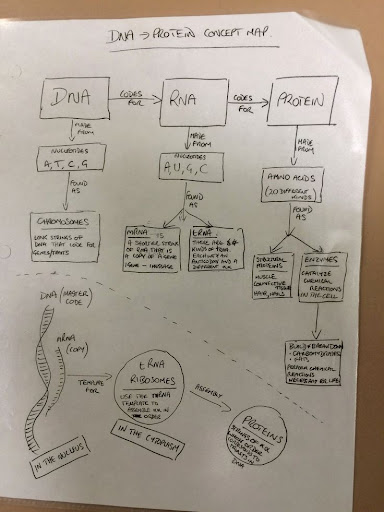 DNA → PROTEIN CONCEPT MAP.
DNA
CODES
FOR
RNA
CODES
FOR
PROTEIN
MADE
FROM
MADE
FROM
MADE
FROM
NUCLEOTIDES
A, T, C, G
NUCLEOTIDES
A, U, G, C
AMINO ACIDS
(20 DIFFERENT
KINDS)
FOUND
AS
FOUND
AS
FOUND
AS
CHROMOSOMES
LONG STRINGS OF
DNA THAT CODE FOR
GENES/TRAITS
mRNA IS
A SHORTER STRING
OF RNA THAT IS
A COPY OF A GENE
tRNA
THESE ARE
KINDS OF tRNA
EACH WITH AN
ANTICODON AND A
DIFFERENT A.A.
STRUCTURAL
PROTEINS
MUSCLE
CONNECTIVE TISSUE
HAIR, NAILS
ENZYMES
CATALYZE
CHEMICAL
REACTIONS
IN THE CELL
BUILD + BREAKDOWN
- CARBOHYDRATES
- FATS
PERFORM CHEMICAL
REACTIONS
NECESSARY FOR LIFE
DNA (MASTER
CODE)
mRNA
(COPY)
TEMPLATE
FOR
tRNA
RIBOSOMES
USE THE mRNA
TEMPLATE TO
ASSEMBLE A.A. IN
THE ORDER
ASSEMBLY
PROTEINS
STRINGS OF A.A.
WHOSE ORDER
CORRESPOND TO
IN
DNA
IN THE NUCLEUS
IN THE CYTOPLASM